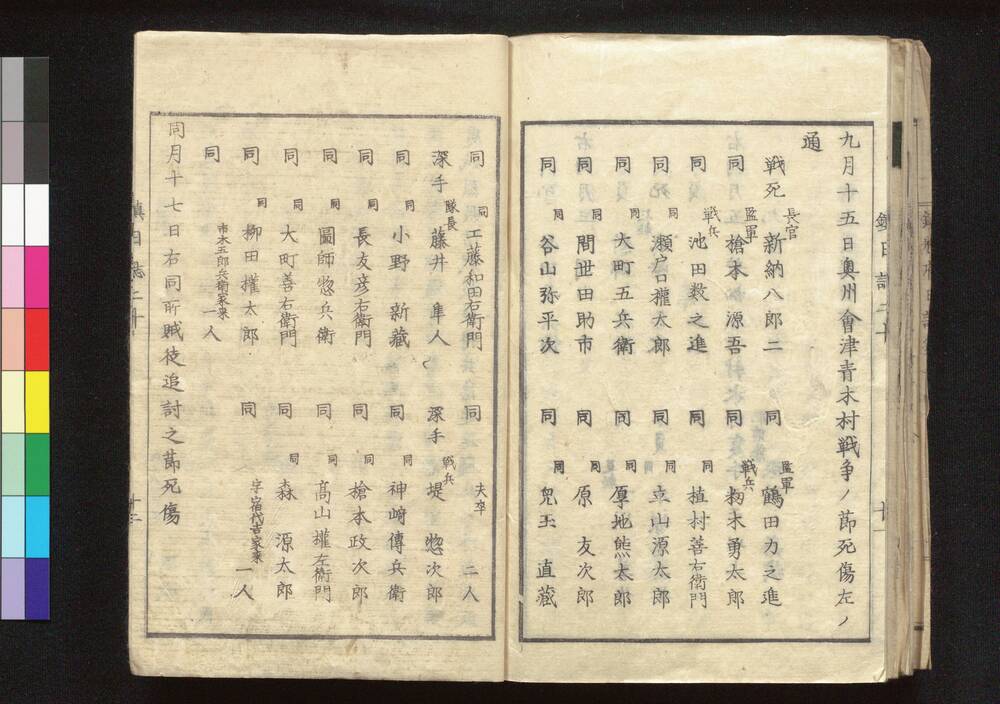 九月十五日奥州會津青木村戦争ノ節死傷左ノ
通
戦死 長官 新納八郎二 同 監軍 鶴田力之進
同 監軍 槍本源吾 同 戦兵 籾木勇太郎
同 戦兵 池田数之進 同 同 植村善右衛門
同 同 瀬戸口權太郎 同 同 立山源太郎
同 同 大町五兵衛 同 同 厚地熊太郎
同 同 間世田助市 同 同 原 友次郎
同 同 谷山弥平次 同 同 児玉 直藏
同 同 工藤和田右衛門 同 夫卒 二人
深手 隊長 藤井 隼人 深手 戦兵 堤 惣次郎
同 同 小野 新藏 同 同 神崎傳兵衛
同 同 長友彦右衛門 同 同 槍本政次郎
同 同 圖師惣兵衛 同 同 髙山權左衛門
同 同 大町善右衛門 同 同 森 源太郎
同 同 柳田權太郎 同 宇宿代吉家来 一人
同 市木五郎兵衛家来 一人
同月十七日右同所賊徒追討之節死傷